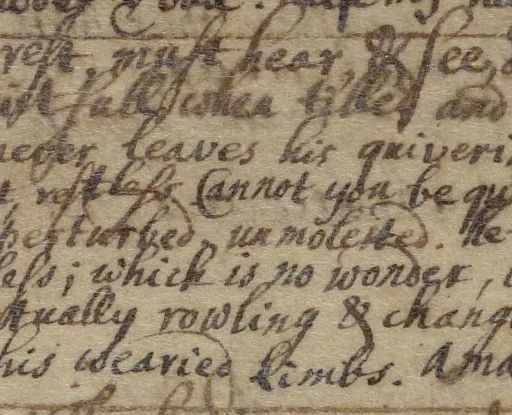 rest, must hear, & see,
fall when tilled and
never leaves his quiveri
restless Cannot you be qu
perturbed, unmolested. He
less; which is no wonder,
ctually rowling & chang
his wearied limbs. A ma